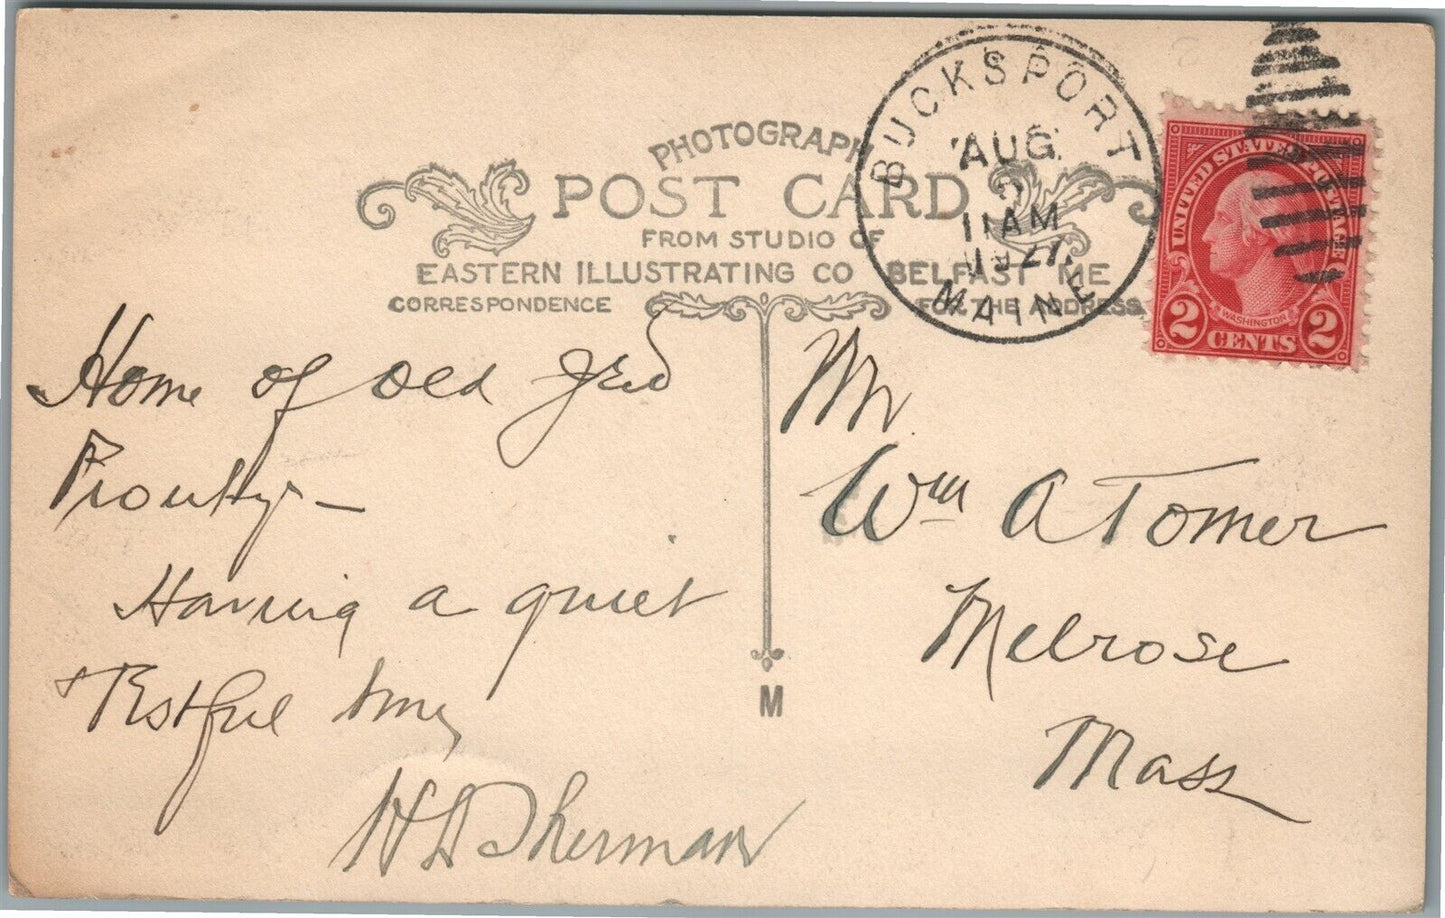 PHOTOGRAPH
POST CARD
FROM STUDIO OF
EASTERN ILLUSTRATING CO BELFAST ME
CORRESPONDENCE
FOR THE ADDRESS
BUCKSPORT
AUG
11 AM
MAINE
UNITED STATES POSTAGE
WASHINGTON
2 CENTS 2
Home of old Jed
Prouty -
Having a quiet
+ restful time
H L Sherman
M
Mr.
Wm A Tomer
Melrose
Mass